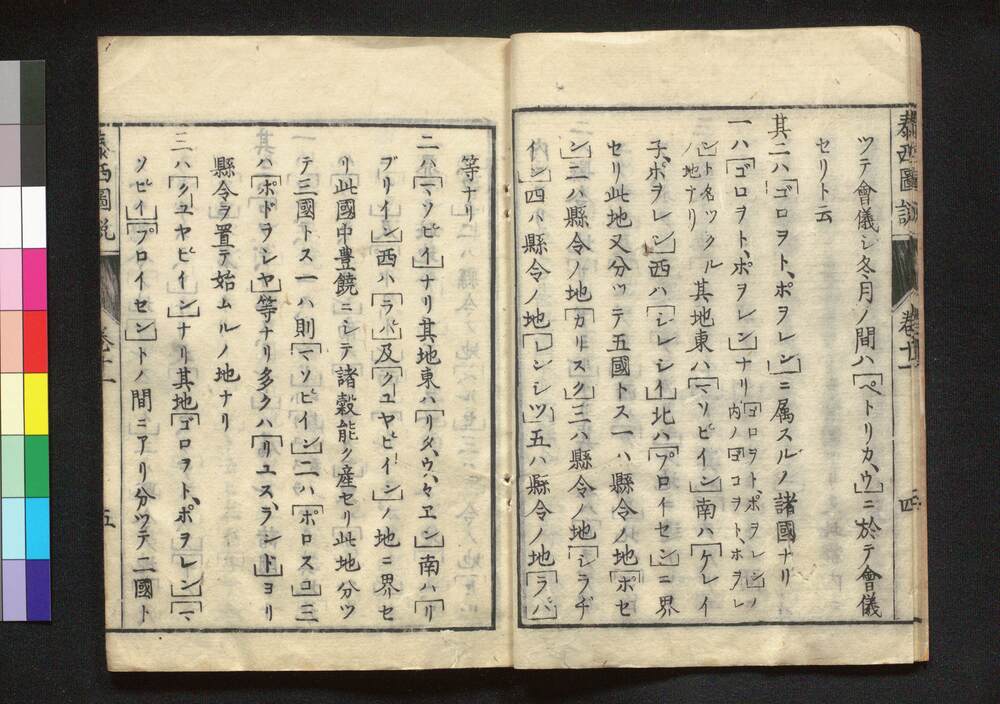 泰西圖説
卷十一
四
ツテ會儀シ冬月ノ間ハ「ペトリカ、ウ」ニ於テ會儀
セリト云
其二ハ「ゴロヲト、ポヲレン」ニ属スルノ諸國ナリ
一ハ「ゴロヲト、ポヲレン」ナリ「ゴロヲト、ポヲレン」ノ
内ノ「ゴロヲト、ポヲレ
ン」ト名ツクル
ノ地ナリ
其地東ハ「マソビイン」南ハ「ケレイ
子、ポヲレン」西ハ「シレシイ」北ハ「プロイセン」ニ界
セリ此地又分ツテ五國トス一ハ縣令ノ地「ポセ
ン」二ハ縣令ノ地「カリスク」三ハ縣令ノ地「シラヂ
イン」四ハ縣令ノ地「レンシツ」五ハ縣令ノ地「ラバ」
等ナリ
二ハ「マソビイ」ナリ其地東ハ「リタ、ウ、ヱン」南ハ「リ
ブリイン」西ハ「ラバ」及「クユヤビイン」ノ地ニ界セ
リ此國中豊饒ニシテ諸穀能ク産セリ此地分ツ
テ三國トス一ハ則「マソビイン」二ハ「ポロスコ」三
ハ「ポドヲシヤ」等ナリ多クハ「リユス、ランド」ヨリ
縣令ヲ置テ始ムルノ地ナリ
三ハ「クユヤビイン」ナリ其地「ゴロヲト、ポヲレン」「マ
ソビイ」「プロイセン」トノ間ニアリ分ツテ二國ト
泰西圖説
卷十一
五